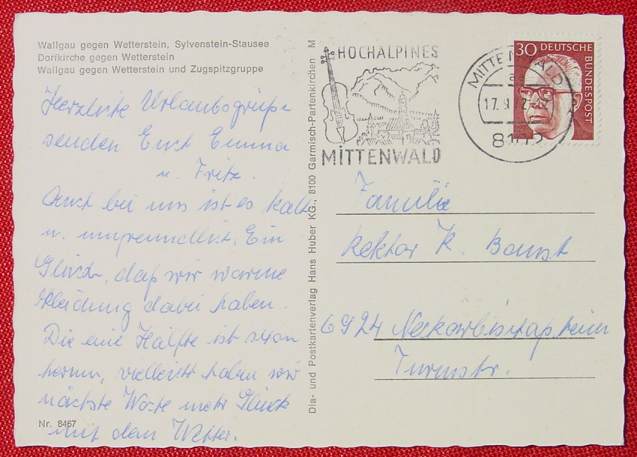 Wallgau gegen Wetterstein, Sylvenstein-Stausee
Dorfkirche gegen Wetterstein
Wallgau gegen Wetterstein und Zugspitzgruppe
Herzliche Urlaubsgrüße
senden Euch Emma
u. Fritz.
Auch bei uns ist es kalt
u. unfreundlich. Ein
Glück, daß wir warme
Kleidung dabei haben.
Die eine Hälfte ist schon
herum, vielleicht haben wir
nächste Woche mehr Glück
mit dem Wetter.
Nr. 8467
Dia- und Postkartenverlag Hans Huber KG., 8100 Garmisch-Partenkirchen M
HOCHALPINES
MITTENWALD
MITTENWALD
a
17.9.72
8102
30 DEUTSCHE
BUNDESPOST
Familie
Rektor K.
6924 Neckarbischofsheim
Turmstr.